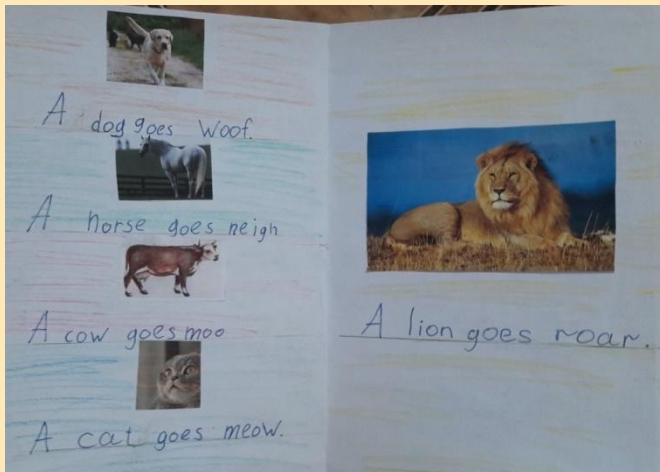 A dog goes Woof.
A horse goes neigh
A cow goes moo
A cat goes meow.
A lion goes roar.